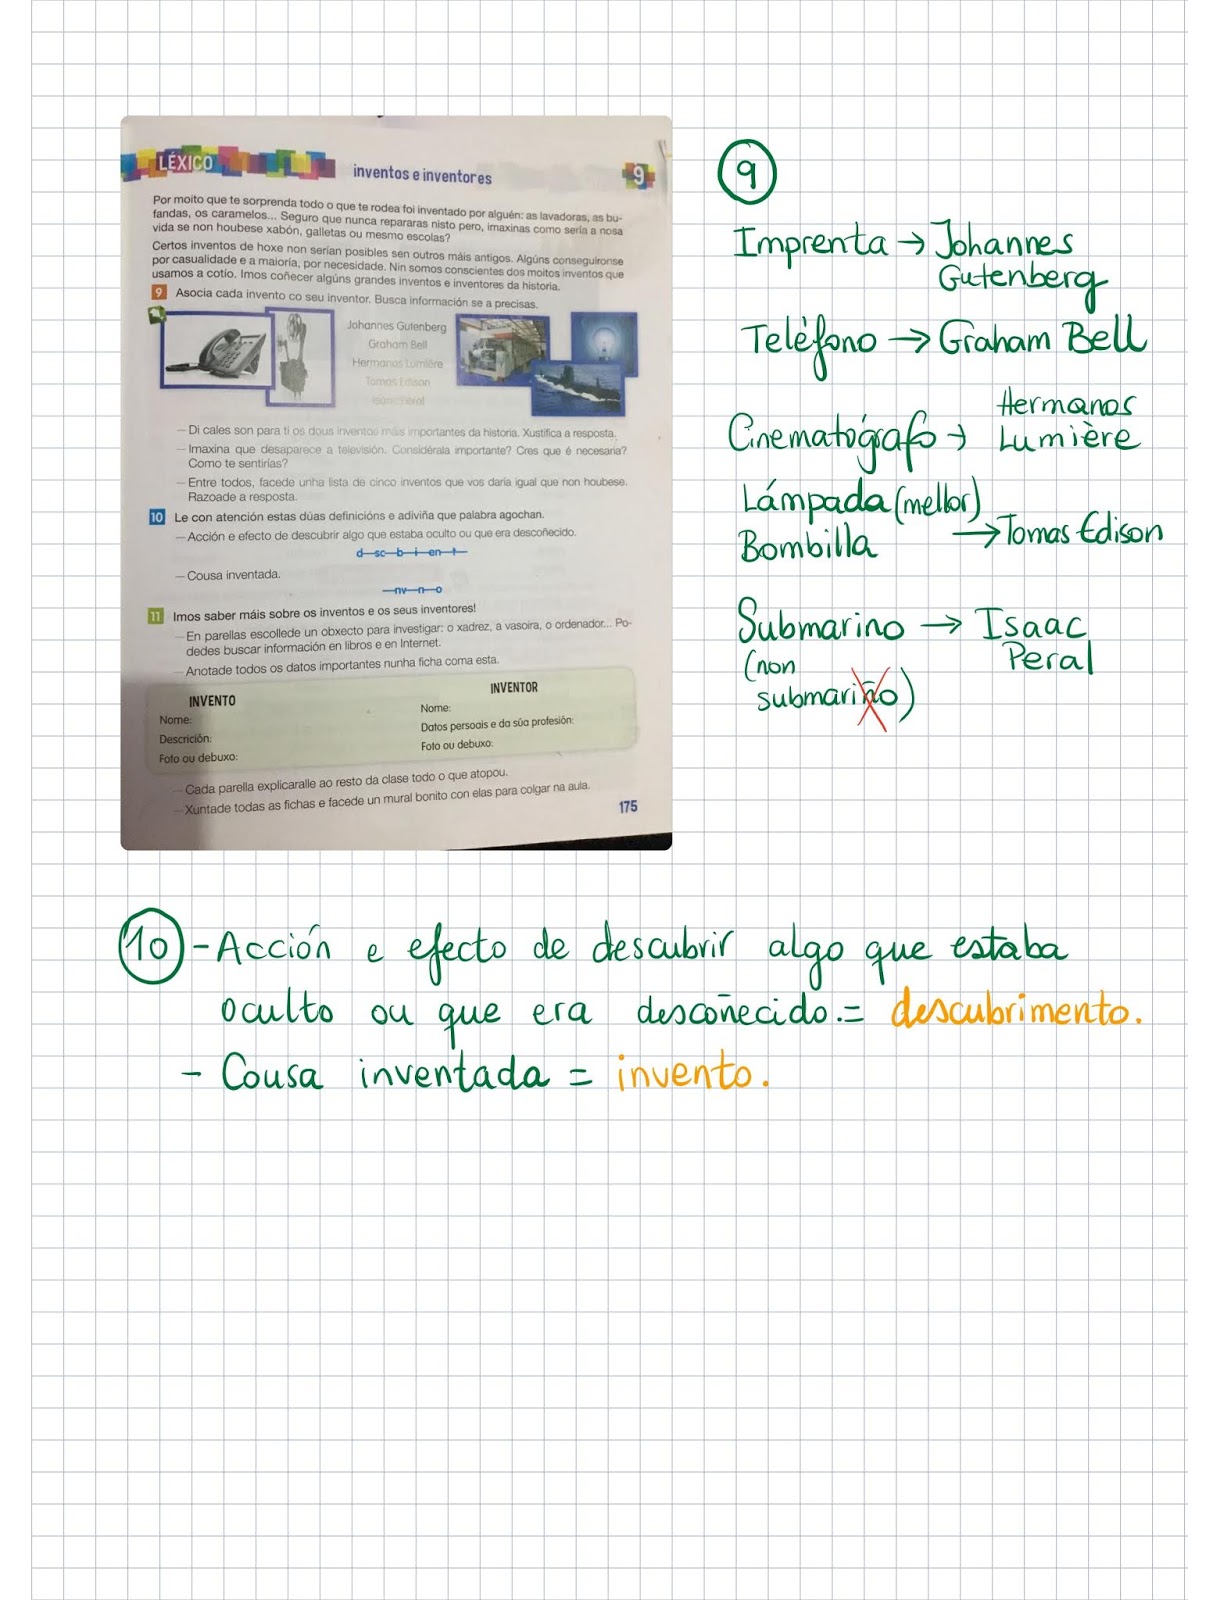 LÉXICO
inventos e inventores
9
Por moito que te sorprenda todo o que te rodea foi inventado por alguén: as lavadoras, as bu-
fandas, os caramelos... Seguro que nunca repararas nisto pero, imaxinas como sería a nosa
vida se non houbese xabón, galletas ou mesmo escolas?
Certos inventos de hoxe non serían posibles sen outros máis antigos. Algúns conseguíronse
por casualidade e a maioría, por necesidade. Nin somos conscientes dos moitos inventos que
usamos a cotío. Imos coñecer algúns grandes inventos e inventores da historia.
9 Asocia cada invento co seu inventor. Busca información se a precisas.
Johannes Gutenberg
Graham Bell
Hermanos Lumière
Tomas Edison
Isaac Peral
— Di cales son para ti os dous inventos máis importantes da historia. Xustifica a resposta.
— Imaxina que desaparece a televisión. Considérala importante? Cres que é necesaria?
Como te sentirías?
— Entre todos, facede unha lista de cinco inventos que vos daría igual que non houbese.
Razoade a resposta.
10 Le con atención estas dúas definicións e adiviña que palabra agochan.
— Acción e efecto de descubrir algo que estaba oculto ou que era descoñecido.
d—sc—b—i—en—t—
— Cousa inventada.
—nv—n—o
11 Imos saber máis sobre os inventos e os seus inventores!
— En parellas escollede un obxecto para investigar: o xadrez, a vasoira, o ordenador... Po-
dedes buscar información en libros e en Internet.
— Anotade todos os datos importantes nunha ficha coma esta.
INVENTO
Nome:
Descrición:
Foto ou debuxo:
INVENTOR
Nome:
Datos persoais e da súa profesión:
Foto ou debuxo:
— Cada parella explicaralle ao resto da clase todo o que atopou.
— Xuntade todas as fichas e facede un mural bonito con elas para colgar na aula.
175
9
Imprenta → Johannes
Gutenberg
Teléfono → Graham Bell
Cinematógrafo → Hermanos
Lumière
Lámpada (mellor)
Bombilla → Tomas Edison
Submarino → Isaac
Peral
(non
submariño)
10 - Acción e efecto de descubrir algo que estaba
oculto ou que era descoñecido. = descubrimento.
- Cousa inventada = invento.